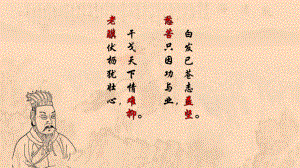 老骥伏枥犹壮心，
干戈天下情难抑。
苦只因功与业，
白发已苍志益坚。